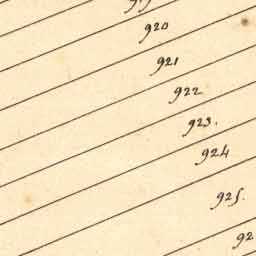 920
921
922
923.
924
925.